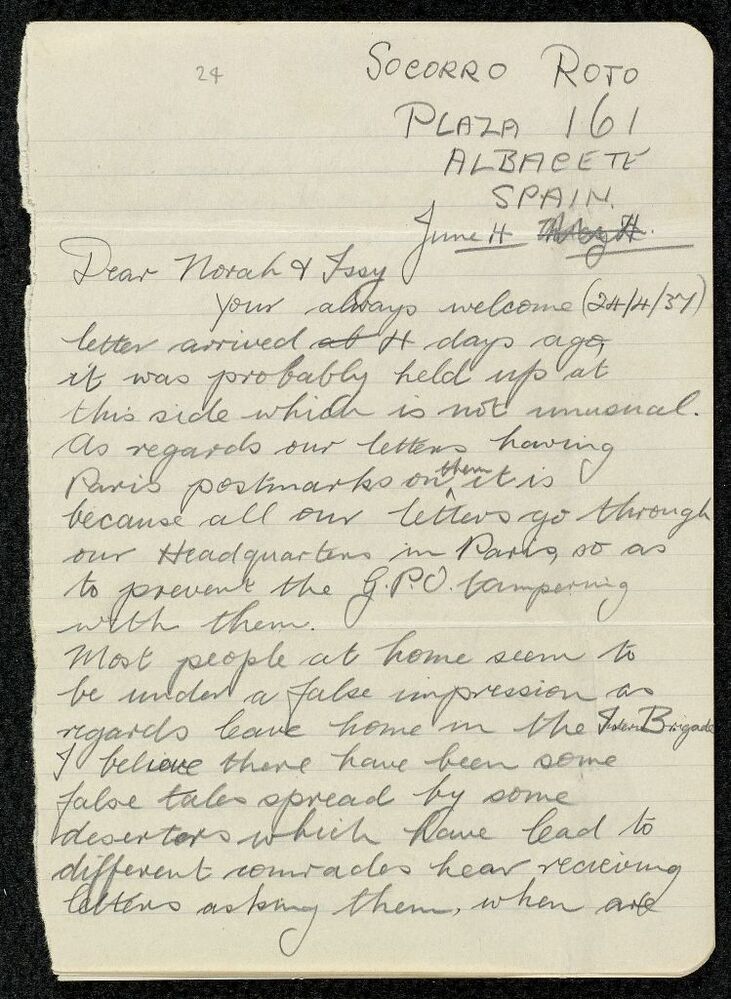 24
SOCORRO ROTO
PLAZA 161
ALBACETE
SPAIN.
June 4
Dear Norah & Issy
Your always welcome (24/4/37)
letter arrived ab 4 days ago,
it was probably held up at
this side which is not unusual.
As regards our letters having
Paris postmarks on them it is
because all our letters go through
our Headquarters in Paris, so as
to prevent the G.P.O. tampering
with them.
Most people at home seem to
be under a false impression as
regards leave home in the Brigade
I believe there have been some
false tales spread by some
deserters which have lead to
different comrades hear recieving
letters asking them, when are